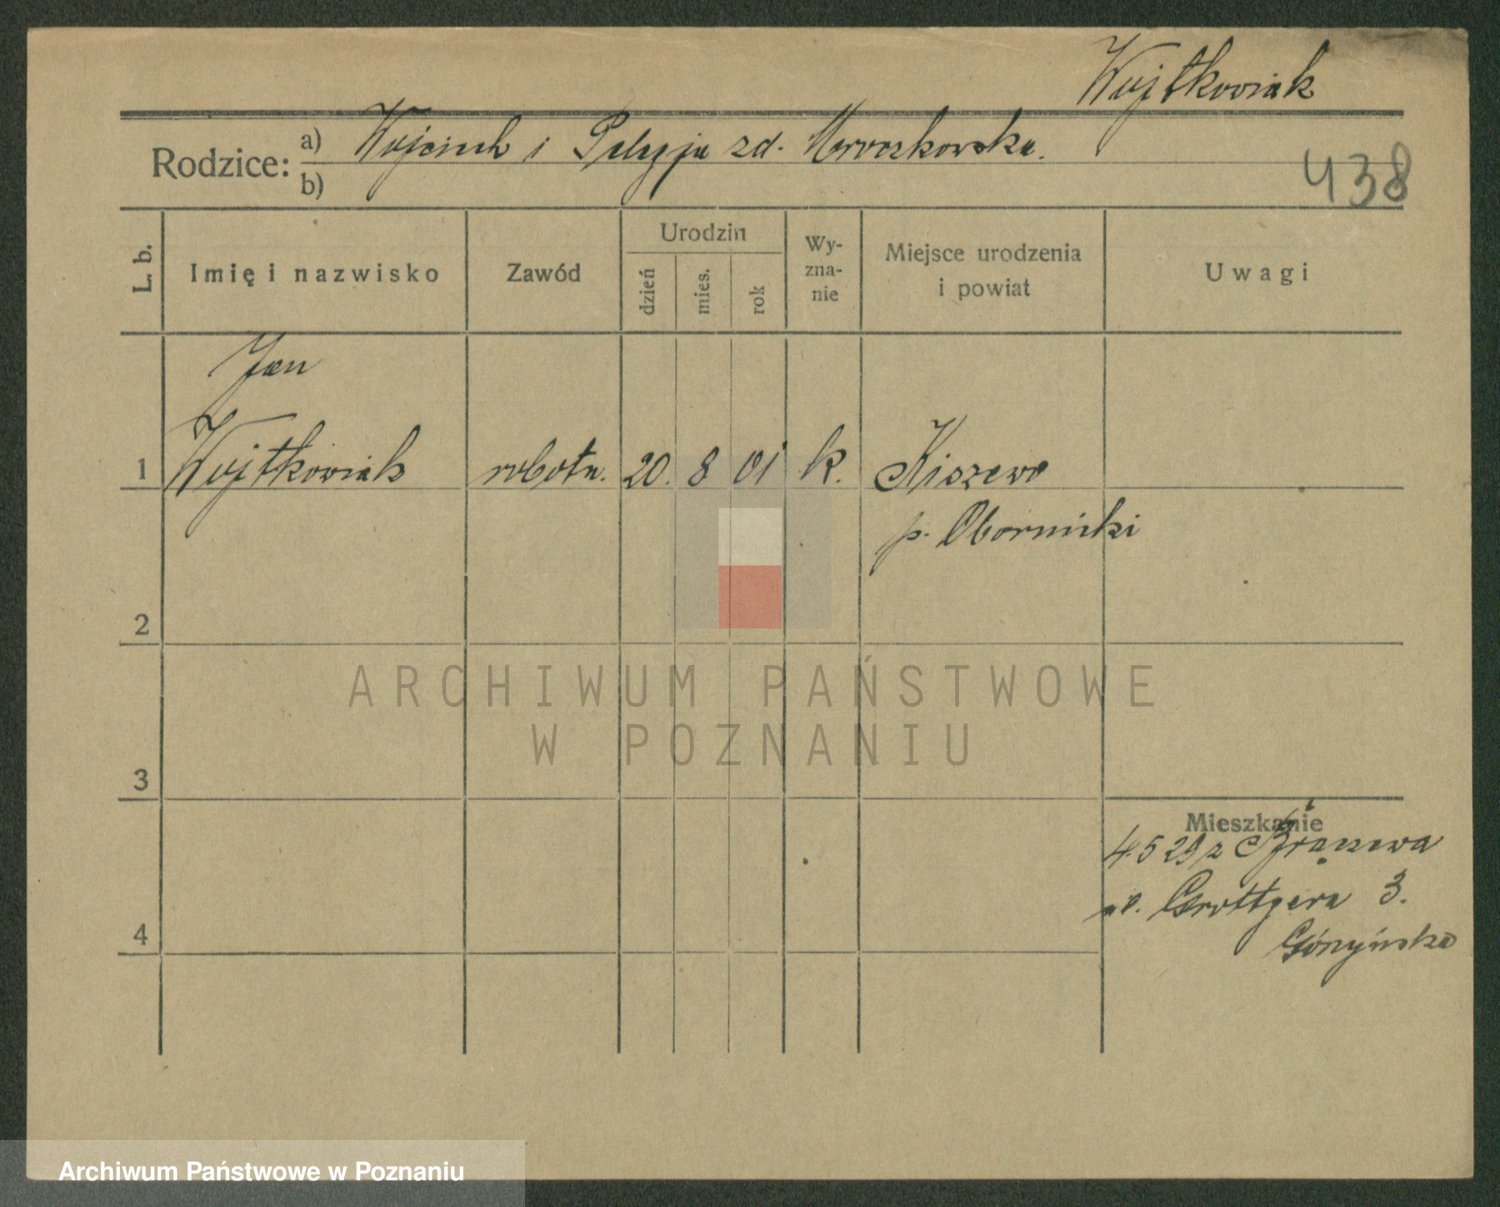 Wojtkowiak
Rodzice: a) Wojciech i Pelagja zd. Mroczkowska.
b)
438
L. b.
Imię i nazwisko
Zawód
Urodzin
dzień
mies.
rok
Wy-
zna-
nie
Miejsce urodzenia
i powiat
Uwagi
Jan
1 Wojtkowiak robotn. 20. 8 01 k. Kiszewo
p. Obornicki
2
ARCHIWUM PAŃSTWOWE
W POZNANIU
3
Mieszkanie
4.5 29 z
ul. Grottgera 3.
4
Archiwum Państwowe w Poznaniu